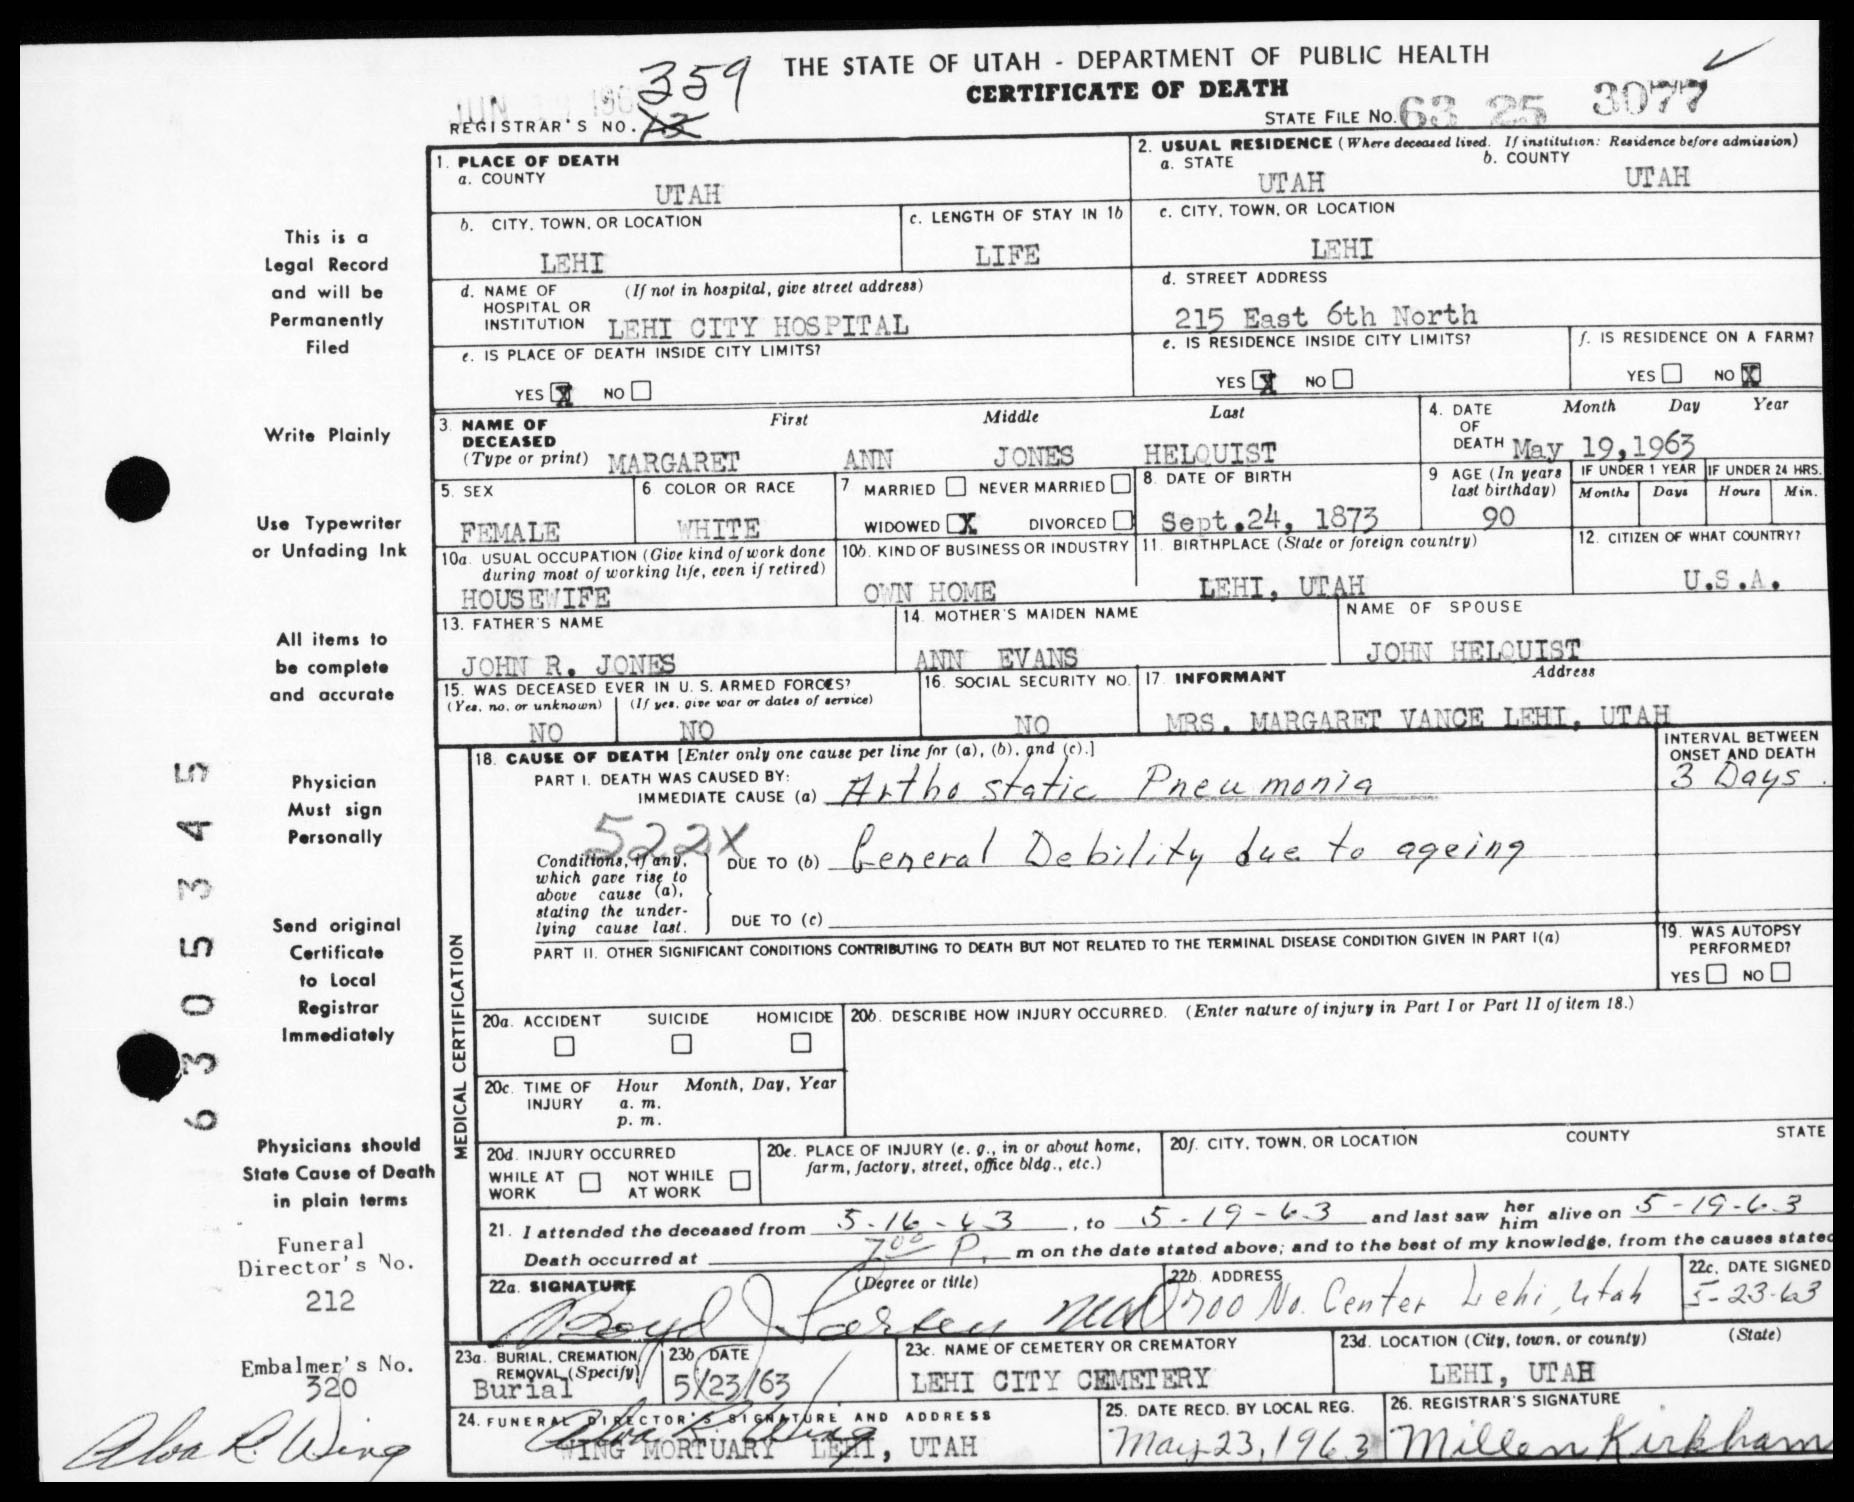 THE STATE OF UTAH - DEPARTMENT OF PUBLIC HEALTH
CERTIFICATE OF DEATH
JUN
359
REGISTRAR'S NO. 13
STATE FILE NO. 63 25 3077
1. PLACE OF DEATH
a. COUNTY
UTAH
2. USUAL RESIDENCE (Where deceased lived. If institution: Residence before admission)
a. STATE b. COUNTY
UTAH UTAH
b. CITY, TOWN, OR LOCATION
LEHI
c. LENGTH OF STAY IN 1b
LIFE
c. CITY, TOWN, OR LOCATION
LEHI
d. NAME OF HOSPITAL OR INSTITUTION (If not in hospital, give street address)
LEHI CITY HOSPITAL
d. STREET ADDRESS
215 East 6th North
e. IS PLACE OF DEATH INSIDE CITY LIMITS?
YES X NO
e. IS RESIDENCE INSIDE CITY LIMITS?
YES X NO
f. IS RESIDENCE ON A FARM?
YES NO X
3. NAME OF DECEASED (Type or print)
First Middle Last
MARGARET ANN JONES HELQUIST
4. DATE OF DEATH Month Day Year
May 19, 1963
5. SEX
FEMALE
6 COLOR OR RACE
WHITE
7 MARRIED NEVER MARRIED
WIDOWED X DIVORCED
8. DATE OF BIRTH
Sept.24, 1873
9 AGE (In years last birthday)
90
IF UNDER 1 YEAR
Months Days
IF UNDER 24 HRS.
Hours Min.
10a. USUAL OCCUPATION (Give kind of work done during most of working life, even if retired)
HOUSEWIFE
10b. KIND OF BUSINESS OR INDUSTRY
OWN HOME
11. BIRTHPLACE (State or foreign country)
LEHI, UTAH
12. CITIZEN OF WHAT COUNTRY?
U.S.A.
13. FATHER'S NAME
JOHN R. JONES
14. MOTHER'S MAIDEN NAME
ANN EVANS
NAME OF SPOUSE
JOHN HELQUIST
15. WAS DECEASED EVER IN U. S. ARMED FORCES?
(Yes, no, or unknown) (If yes, give war or dates of service)
NO NO
16. SOCIAL SECURITY NO.
NO
17. INFORMANT Address
MRS. MARGARET VANCE LEHI, UTAH
MEDICAL CERTIFICATION
18. CAUSE OF DEATH [Enter only one cause per line for (a), (b), and (c).]
PART I. DEATH WAS CAUSED BY:
IMMEDIATE CAUSE (a) Artho static Pneumonia
INTERVAL BETWEEN ONSET AND DEATH
3 Days
522X
Conditions, if any, which gave rise to above cause (a), stating the underlying cause last.
DUE TO (b) General Debility due to ageing
DUE TO (c)
PART II. OTHER SIGNIFICANT CONDITIONS CONTRIBUTING TO DEATH BUT NOT RELATED TO THE TERMINAL DISEASE CONDITION GIVEN IN PART I(a)
19. WAS AUTOPSY PERFORMED?
YES NO
20a. ACCIDENT SUICIDE HOMICIDE
20b. DESCRIBE HOW INJURY OCCURRED. (Enter nature of injury in Part I or Part II of item 18.)
20c. TIME OF INJURY Hour Month, Day, Year
a. m.
p. m.
20d. INJURY OCCURRED
WHILE AT WORK NOT WHILE AT WORK
20e. PLACE OF INJURY (e. g., in or about home, farm, factory, street, office bldg., etc.)
20f. CITY, TOWN, OR LOCATION COUNTY STATE
21. I attended the deceased from 5-16-63, to 5-19-63 and last saw her him alive on 5-19-63
Death occurred at 7:00 P. m on the date stated above; and to the best of my knowledge, from the causes stated
22a. SIGNATURE (Degree or title)
Boyd J. Larsen MD
22b. ADDRESS
700 No. Center Lehi, Utah
22c. DATE SIGNED
5-23-63
23a. BURIAL, CREMATION, REMOVAL (Specify)
Burial
23b. DATE
5/23/63
23c. NAME OF CEMETERY OR CREMATORY
LEHI CITY CEMETERY
23d. LOCATION (City, town, or county) (State)
LEHI, UTAH
24. FUNERAL DIRECTOR'S SIGNATURE AND ADDRESS
Alva R. Wing
WING MORTUARY LEHI, UTAH
25. DATE RECD. BY LOCAL REG.
May 23, 1963
26. REGISTRAR'S SIGNATURE
Millen Kirkham
This is a
Legal Record
and will be
Permanently
Filed
Write Plainly
Use Typewriter
or Unfading Ink
All items to
be complete
and accurate
Physician
Must sign
Personally
Send original
Certificate
to Local
Registrar
Immediately
Physicians should
State Cause of Death
in plain terms
Funeral
Director's No.
212
Embalmer's No.
320
Alva R. Wing
6305345